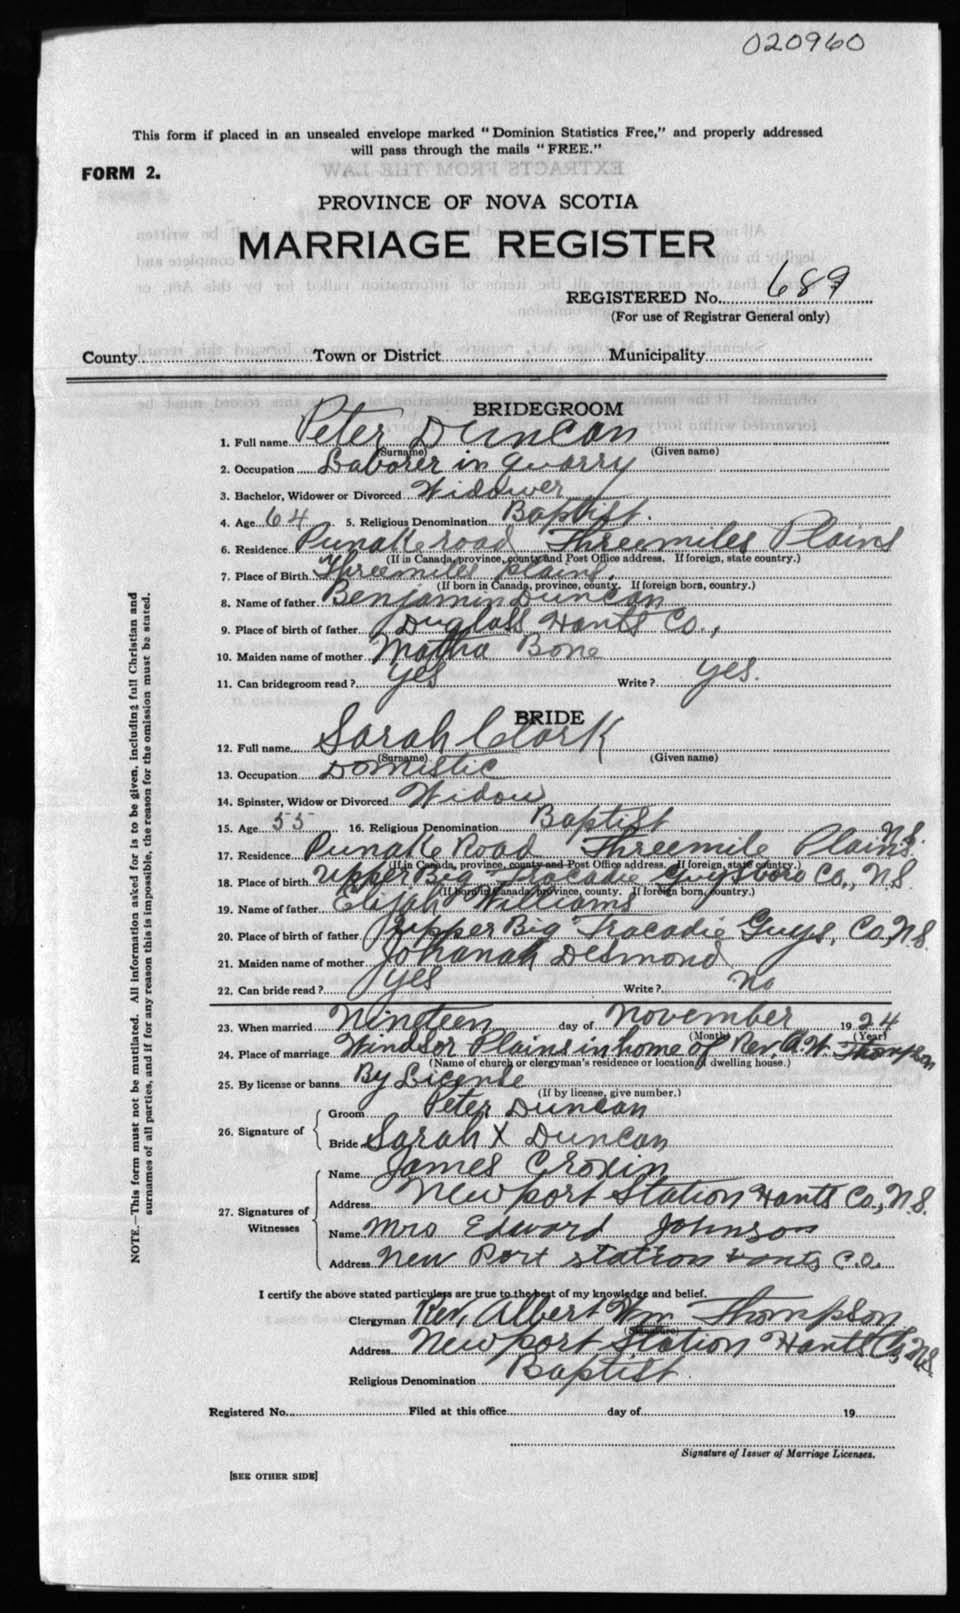 020960
This form if placed in an unsealed envelope marked "Dominion Statistics Free," and properly addressed
will pass through the mails "FREE."
FORM 2.
PROVINCE OF NOVA SCOTIA
MARRIAGE REGISTER
REGISTERED No. 689
(For use of Registrar General only)
County Town or District Municipality
BRIDEGROOM
1. Full name Peter Duncan
(Surname) (Given name)
2. Occupation Laborer in quarry
3. Bachelor, Widower or Divorced Widower
4. Age 64 5. Religious Denomination Baptist.
6. Residence road Threemiles Plains
(If in Canada, province, county and Post Office address. If foreign, state country.)
7. Place of Birth Threemiles plains,
(If born in Canada, province, county. If foreign born, country.)
8. Name of father Benjamin Duncan
9. Place of birth of father Duglass Hants Co.,
10. Maiden name of mother Matha Bone
11. Can bridegroom read? yes Write? yes.
BRIDE
12. Full name Sarah Clark
(Surname) (Given name)
13. Occupation Domistic
14. Spinster, Widow or Divorced Widow
15. Age 55 16. Religious Denomination Baptist
17. Residence Road Threemile Plains. N.S.
(If in Canada, province, county and Post Office address. If foreign, state country.)
18. Place of birth Upper Big Tracadie Guysboro Co., N.S.
(If born in Canada, province, county. If foreign born, country.)
19. Name of father Elijah Williams
20. Place of birth of father Upper Big Tracadie Guys, Co, N.S.
21. Maiden name of mother Johanah Desmond
22. Can bride read? yes Write? No
23. When married Nineteen day of November 1924
(Month) (Year)
24. Place of marriage Windsor Plains in home of Rev. A. W. Thompson
(Name of church or clergyman's residence or location of dwelling house.)
25. By license or banns By License
(If by license, give number.)
26. Signature of
Groom Peter Duncan
Bride Sarah X Duncan
27. Signatures of Witnesses
Name James Croxin
Address Newport Station Hants Co., N.S.
Name Mrs Edward Johnson
Address New Port station Hants C.o.
I certify the above stated particulars are true to the best of my knowledge and belief.
Clergyman Rev. Albert Wm Thompson
(Signature)
Address Newport Station Hants Co, N.S.
Religious Denomination Baptist.
Registered No. Filed at this office day of 19
Signature of Issuer of Marriage Licenses.
[SEE OTHER SIDE]
NOTE.—This form must not be mutilated. All information asked for is to be given, including full Christian and
surnames of all parties, and if for any reason this is impossible, the reason for the omission must be stated.